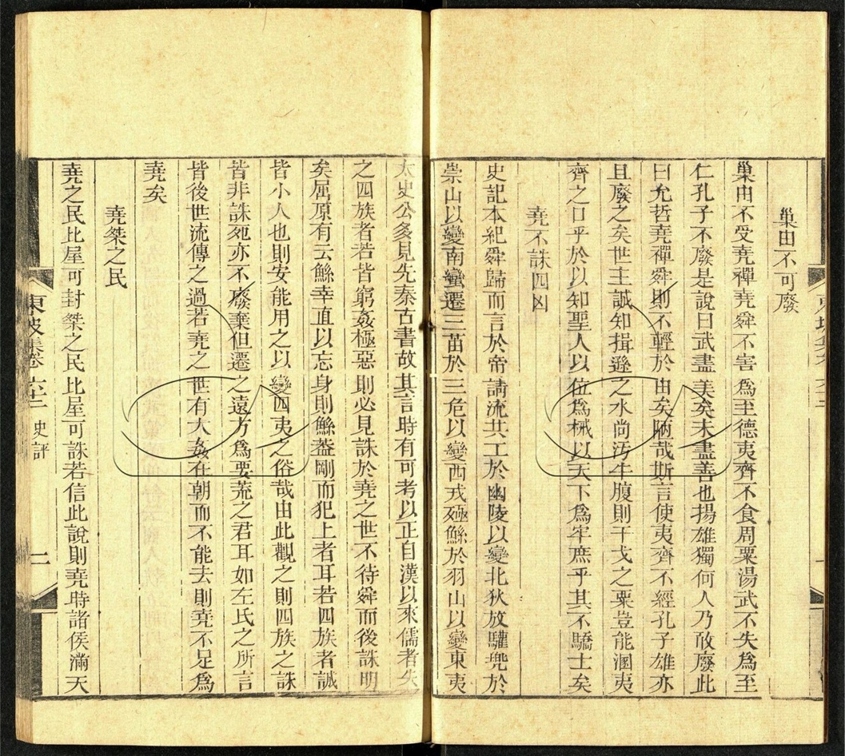 巢由不可廢
巢由不受堯禪堯舜不害爲至德夷齊不食周粟湯武不失爲至
仁孔子不廢是說曰武盡美矣未盡善也揚雄獨何人乃敢廢此
曰允哲堯禪舜則不輕於由矣陋哉斯言使夷齊不經孔子雄亦
且廢之矣世主誠知揖遜之水尚汚牛腹則干戈之粟豈能溷夷
齊之口乎於以知聖人以位爲械以天下爲牢庶乎其不驕士矣
堯不誅四凶
史記本紀舜歸而言於帝請流共工於幽陵以變北狄放驩兜於
崇山以變南蠻遷三苗於三危以變西戎殛鯀於羽山以變東夷
太史公多見先秦古書故其言時有可考以正自漢以來儒者失
之四族者若皆窮姦極惡則必見誅於堯之世不待舜而後誅明
矣屈原有云鯀幸直以忘身則鯀蓋剛而犯上者耳若四族者誠
皆小人也則安能用之以變四夷之俗哉由此觀之則四族之誅
皆非誅死亦不廢棄但遷之遠方爲要荒之君耳如左氏之所言
皆後世流傳之過若堯之世有大姦在朝而不能去則堯不足爲
堯矣
堯桀之民
堯之民比屋可封桀之民比屋可誅若信此說則堯時諸侯滿天
東坡集卷六十二 史評 二